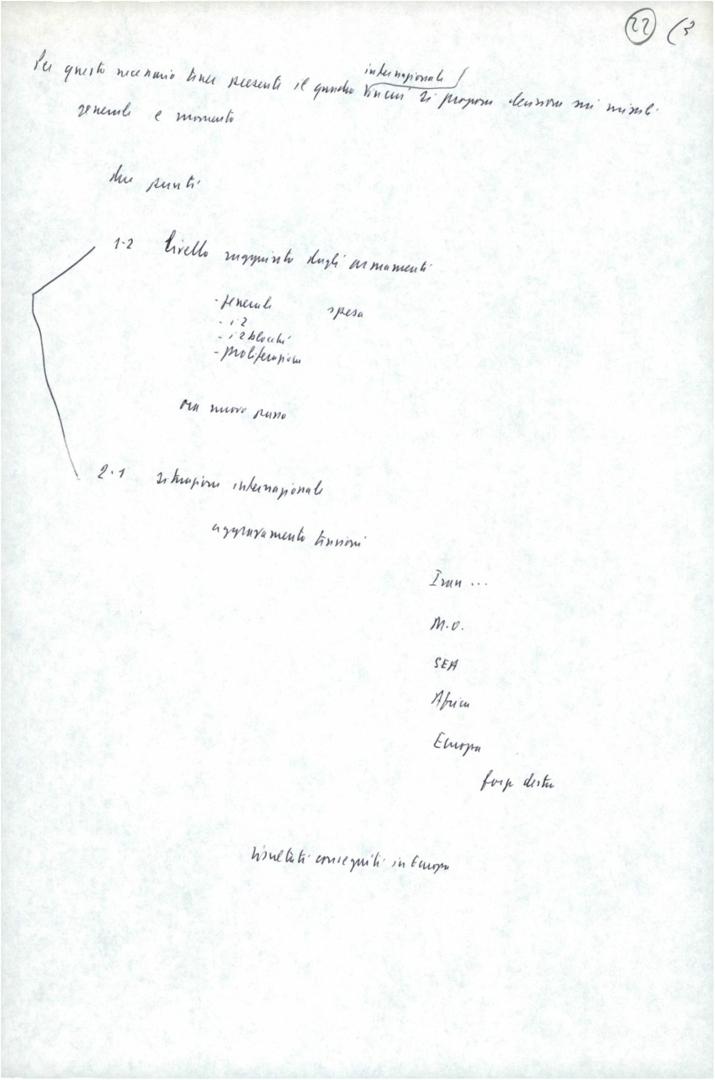 22 (3
internazionale
Per questo necessario tener presente il quadro in cui si propone decisione sui missili
generale e momento
due punti
1-2 livello raggiunto dagli armamenti
- generale spesa
- i 2
- i 2 blocchi
- proliferazione
ora nuovo passo
2-1 situazione internazionale
aggravamento tensioni
Iran ...
M.O.
SEA
Africa
Europa
forze destra
risultati conseguiti in Europa